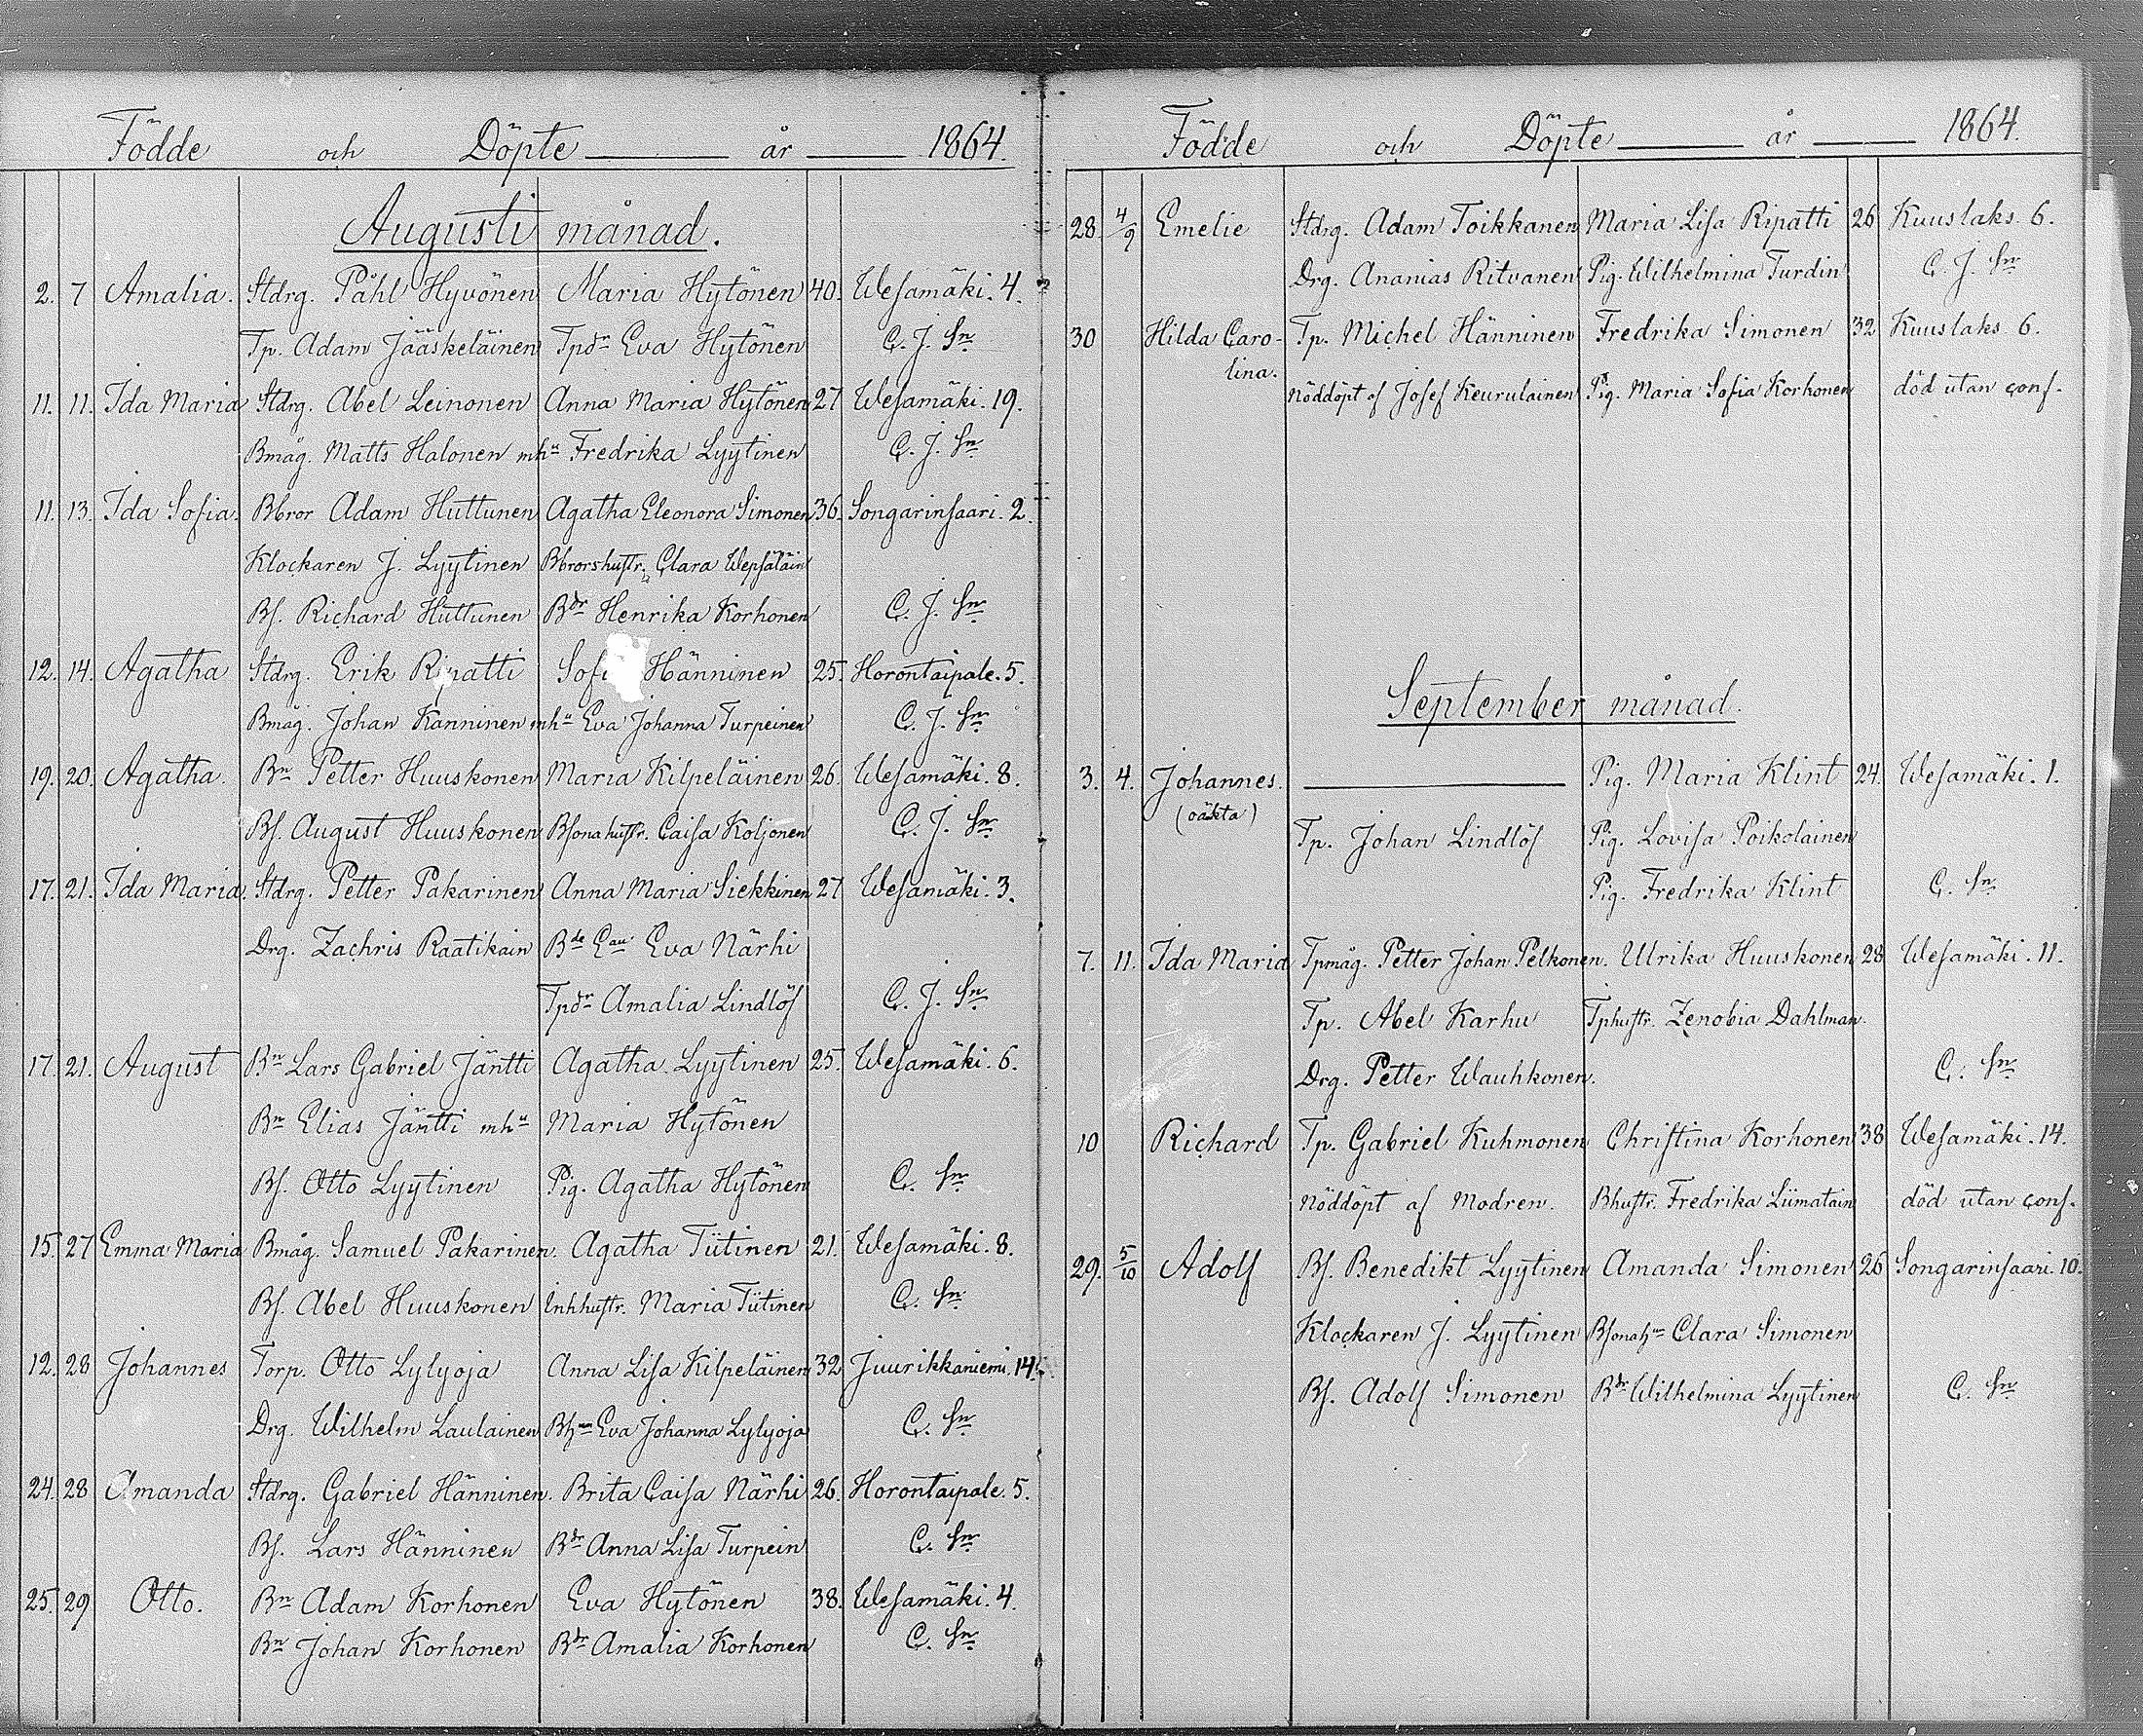 Födde och Döpte år 1864.
Augusti månad.
2. 7 Amalia. Stdrg. Påhl Hyvönen Maria Hytönen 40. Wesamäki. 4.
Tp. Adam Jääskeläinen Tpdr Eva Hytönen C. J. Sn
11. 11. Ida Maria Stdrg. Abel Leinonen Anna Maria Hytönen 27 Wesamäki. 19.
Bmåg. Matts Halonen mhu Fredrika Lyytinen C. J. Sn
11. 13. Ida Sofia. Bbror Adam Huttunen Agatha Eleonora Simonen 36. Songarinsaari. 2.
Klockaren J. Lyytinen Bbrorshustr. Clara Wepsäläin
Bs. Richard Huttunen Bdr Henrika Korhonen C. J. Sn
12. 14. Agatha Stdrg. Erik Ripatti Sofi Hänninen 25. Horontaipale. 5.
Bmåg. Johan Kanninen mhu Eva Johanna Turpeinen C. J. Sn
19. 20. Agatha. Bn Petter Huuskonen Maria Kilpeläinen 26. Wesamäki. 8.
Bs. August Huuskonen Bsonahustr. Caisa Koljonen C. J. Sn
17. 21. Ida Maria. Stdrg. Petter Pakarinen Anna Maria Siekkinen 27 Wesamäki. 3.
Drg. Zachris Raatikain Bde Eva Närhi
Tpdr Amalia Lindlöf C. J. Sn
17. 21. August Bn Lars Gabriel Jäntti Agatha Lyytinen 25. Wesamäki. 6.
Bn Elias Jäntti mhu Maria Hytönen
Bs. Otto Lyytinen Pig. Agatha Hytönen C. Sn
15. 27 Emma Maria Bmåg. Samuel Pakarinen. Agatha Tiitinen 21. Wesamäki. 8.
Bs. Abel Huuskonen Inhhustr. Maria Tiitinen C. Sn
12. 28 Johannes Torp. Otto Lylyoja Anna Lisa Kilpeläinen 32 Juurikkaniemi. 14.
Drg. Wilhelm Laulainen Eva Johanna Lylyoja C. Sn
24. 28 Amanda Stdrg. Gabriel Hänninen. Brita Caisa Närhi 26. Horontaipale. 5.
Bs. Lars Hänninen Bdr Anna Lisa Turpein C. Sn
25. 29 Otto. Bn Adam Korhonen Eva Hytönen 38. Wesamäki. 4.
Bn Johan Korhonen Bdr Amalia Korhonen C. Sn
Födde och Döpte år 1864.
28. 4/9 Emelie Stdrg. Adam Toikkanen Maria Lisa Ripatti 26 Kuuslaks. 6.
Drg. Ananias Ritvanen Pig. Wilhelmina Turdin C. J. Sn
30 Hilda Caro- Tp. Michel Hänninen Fredrika Simonen 32 Kuuslaks. 6.
lina. nöddöpt af Josef Keurulainen Pig. Maria Sofia Korhonen död utan conf.
September månad.
3. 4. Johannes. Pig. Maria Klint 24. Wesamäki. 1.
(oäkta) Tp. Johan Lindlöf Pig. Lovisa Poikolainen
Pig. Fredrika Klint C. Sn
7. 11. Ida Maria Tpmåg. Petter Johan Pelkonen. Ulrika Huuskonen 28 Wesamäki. 11.
Tp. Abel Karhu Tphustr. Zenobia Dahlman.
Drg. Petter Wauhkonen. C. Sn
10 Richard Tp. Gabriel Kuhmonen Christina Korhonen 38 Wesamäki. 14.
nöddöpt af Modren. Bhustr. Fredrika Liimatain död utan conf.
29. 5/10 Adolf Bs. Benedikt Lyytinen Amanda Simonen 26 Songarinsaari. 10.
Klockaren J. Lyytinen Clara Simonen
Bs. Adolf Simonen Bdr Wilhelmina Lyytinen C. Sn